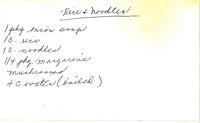 Rice & Noodles
1 pkg. onion soup
1 C. rice
1 C. noodles
1/4 pkg. margarine
mushrooms
4 C water (boiled)